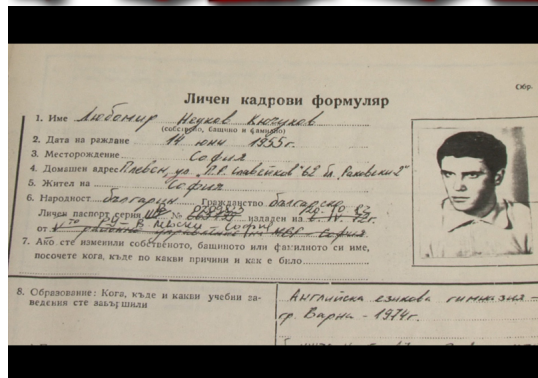 Сюр.
Личен кадрови формуляр
1. Име Любомир Неуков Кючуков
(собствено, бащино и фамилно)
2. Дата на раждане 14 юни 1955г.
3. Месторождение София
4. Домашен адрес Плевен, ул. "П.Р. Славейков" 62 бл. Раковски 2"
5. Жител на София
6. Народност българин Гражданство българско
Личен паспорт серия № издаден на
от София
7. Ако сте изменили собственото, бащиното или фамилното си име,
посочете кога, къде по какви причини и как е било
8. Образование: Кога, къде и какви учебни за- Английска езикова гимназия –
ведения сте завършили гр. Варна – 1974г.